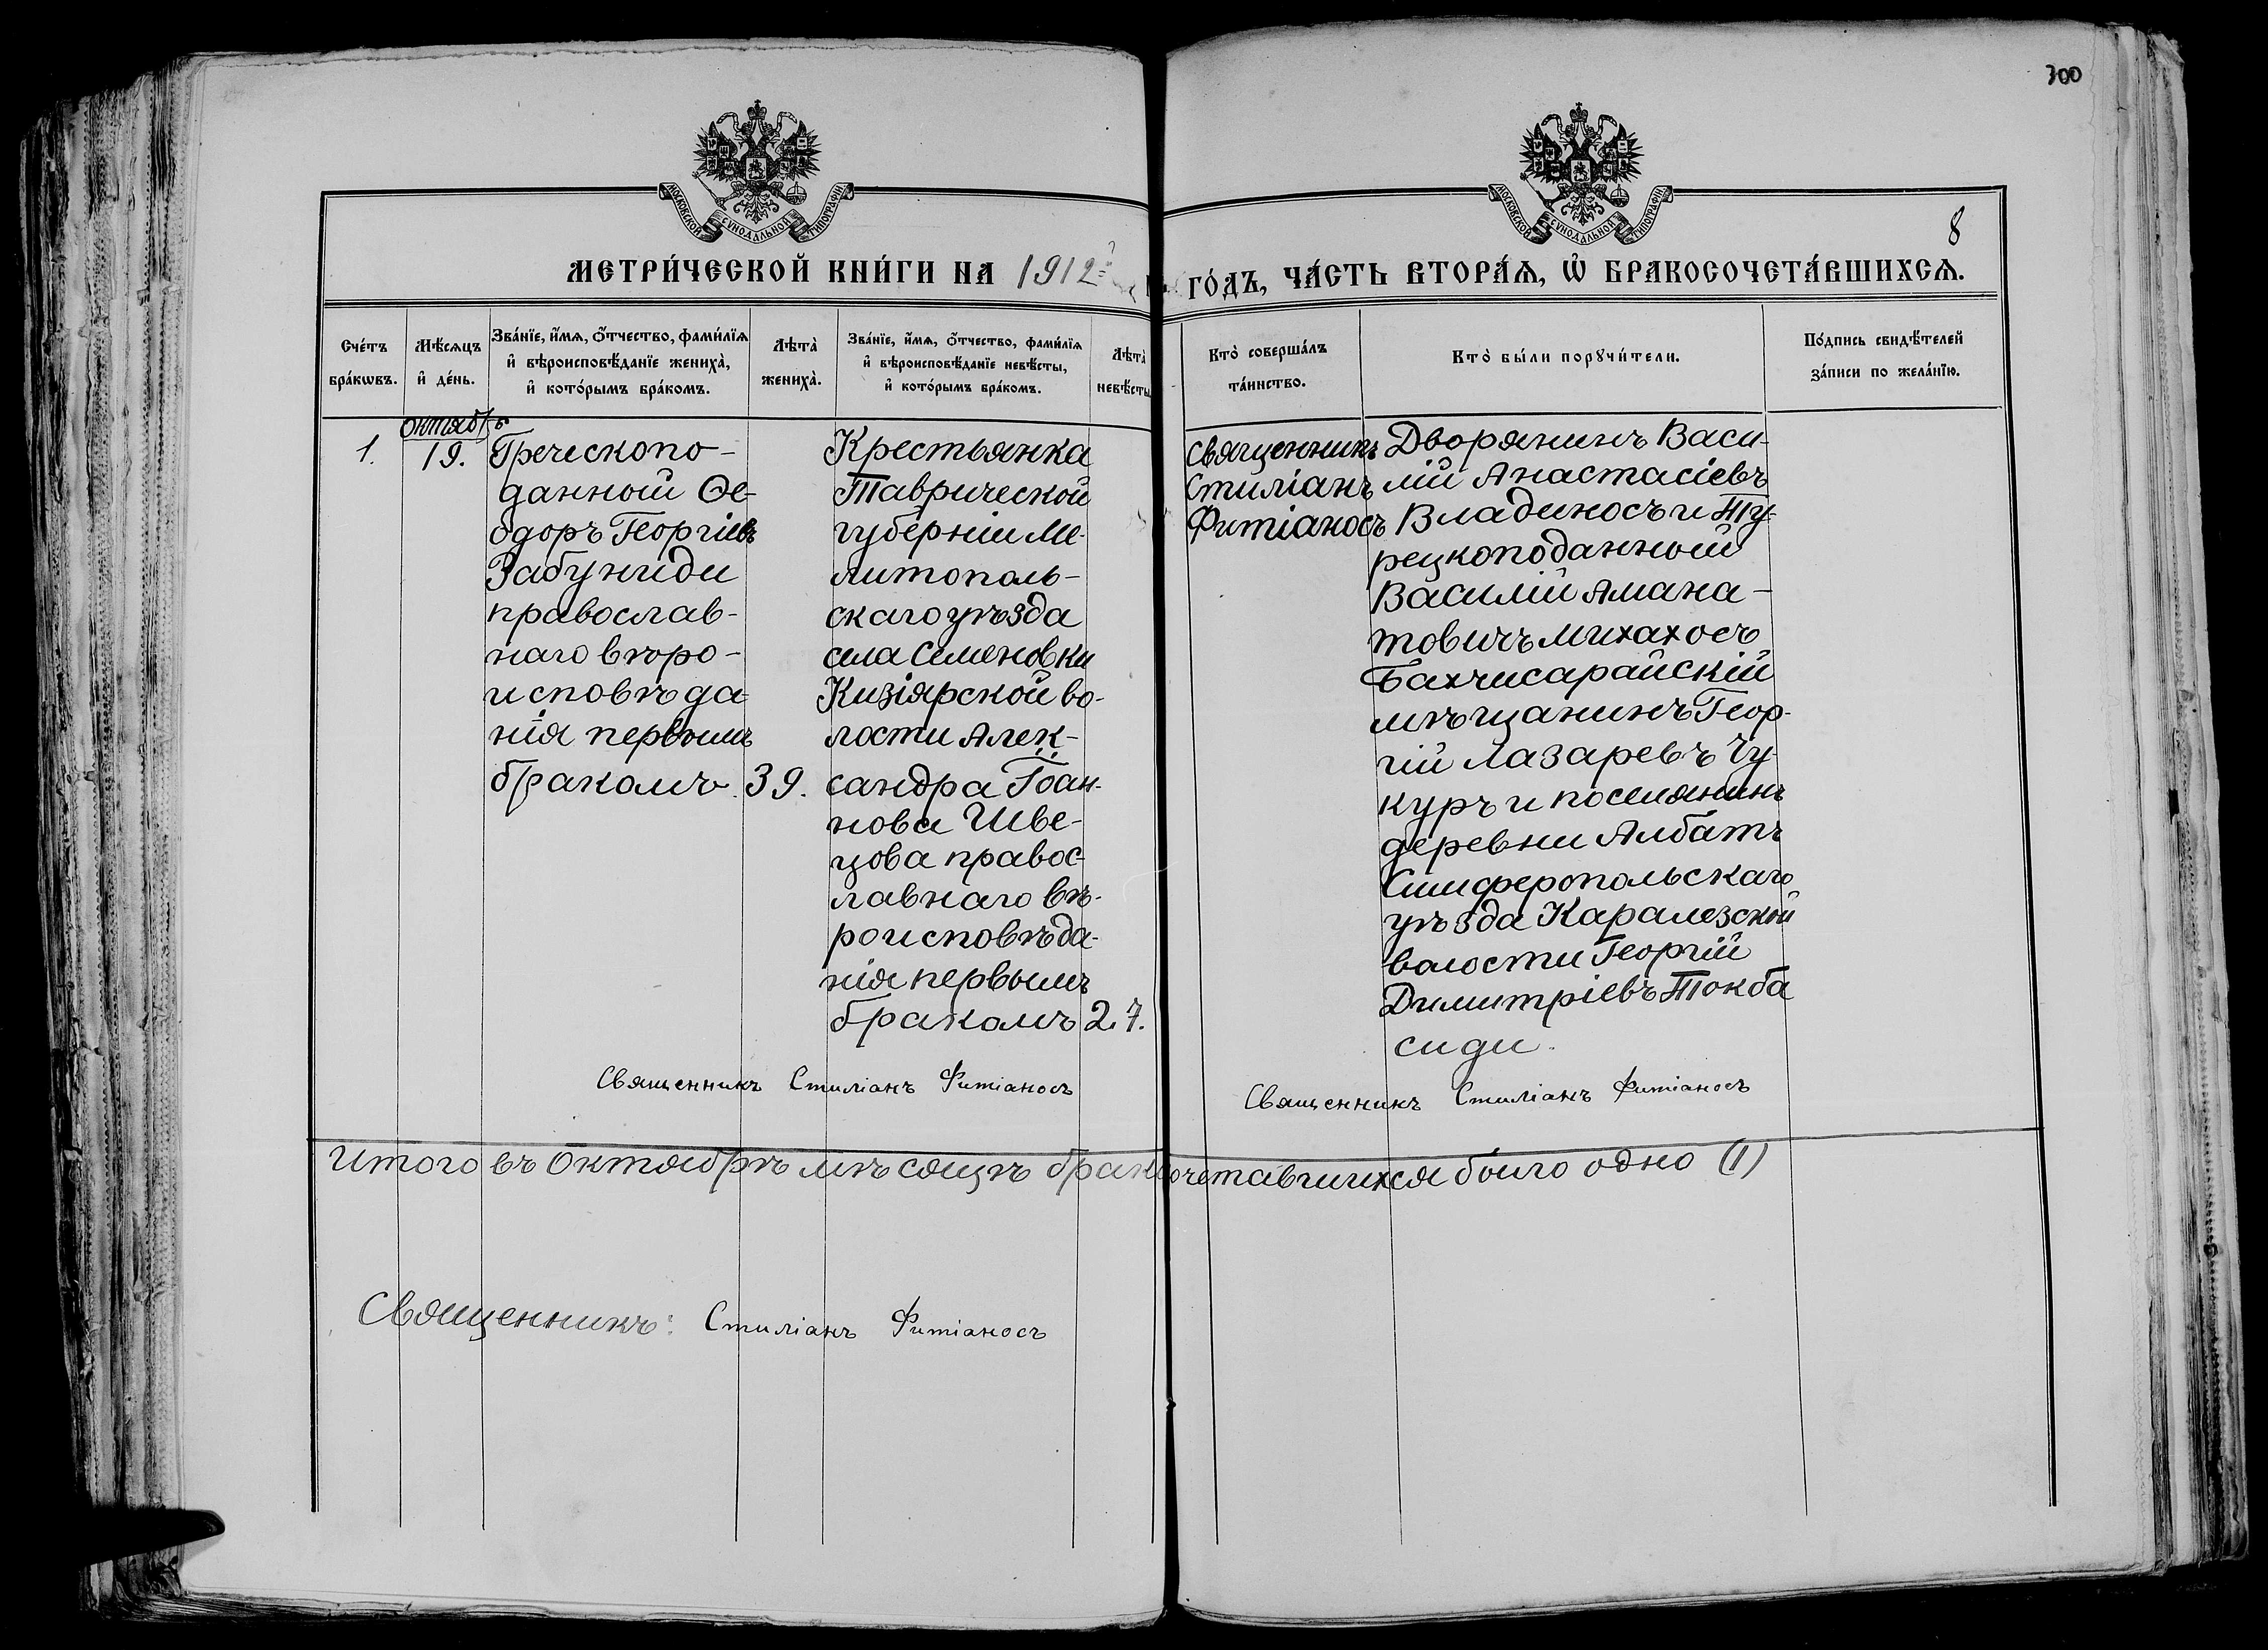 300
МОСКОВСКОЙ СУНОДАЛЬНОЙ ТИПОГРАФІИ
МОСКОВСКОЙ СУНОДАЛЬНОЙ ТИПОГРАФІИ
8
МЕТРИ́ЧЕСКОЙ КНИ́ГИ НА 1912 ГО́ДЪ, ЧА́СТЬ ВТОРА́Ѧ, Ѽ БРАКОСОЧЕТА́ВШИХСѦ.
Сче́тъ
бра́кѡвъ.
Мѣ́сѧцъ
и҆ де́нь.
Зва́нїе, и҆́мѧ, ѻ҆́тчество, фами́лїѧ
и҆ вѣроисповѣ́данїе жениха̀,
и҆ кото́рымъ бра́комъ.
Лѣта̀
жениха̀.
Зва́нїе, и҆́мѧ, ѻ҆́тчество, фами́лїѧ
и҆ вѣроисповѣ́данїе невѣ́сты,
и҆ кото́рымъ бра́комъ.
Лѣта̀
невѣ́сты
Кто̀ соверша́лъ
та́инство.
Кто̀ бы́ли порꙋчи́тели.
По́дпись свидѣ́телей
за́писи по жела́нїю.
1.
Октябрь
19.
Греческопо-
данный Ѳе-
одоръ Георгіевъ
Забуниди
православ-
наго вѣро-
исповѣда-
нія первымъ
бракомъ.
39.
Крестьянка
Таврической
губерніи Ме-
литополь-
скаго уѣзда
села Семеновки
Кизіярской во-
лости Алек-
сандра Іоан-
нова Шве-
цова правос-
лавнаго вѣ-
роисповѣда-
нія первымъ
бракомъ
27.
Священникъ
Стиліанъ
Фитіаносъ
Дворянинъ Васи-
лій Анастасіевъ
Владиносъ и Ту-
рецкоподанный
Василій Амана-
товичъ Михахосъ
Бахчисарайскій
мѣщанинъ Геор-
гій Лазаревъ Чу-
куръ и поселянинъ
деревни Албатъ
Симферопольскаго
уѣзда Каралезской
валости Георгій
Димитріевъ Токба
сиди.
Священникъ Стиліанъ Фитіаносъ
Священникъ Стиліанъ Фитіаносъ
Итого въ Октябрѣ мѣсяцѣ бракочетавшихся было одно (1)
Священникъ: Стиліанъ Фитіаносъ